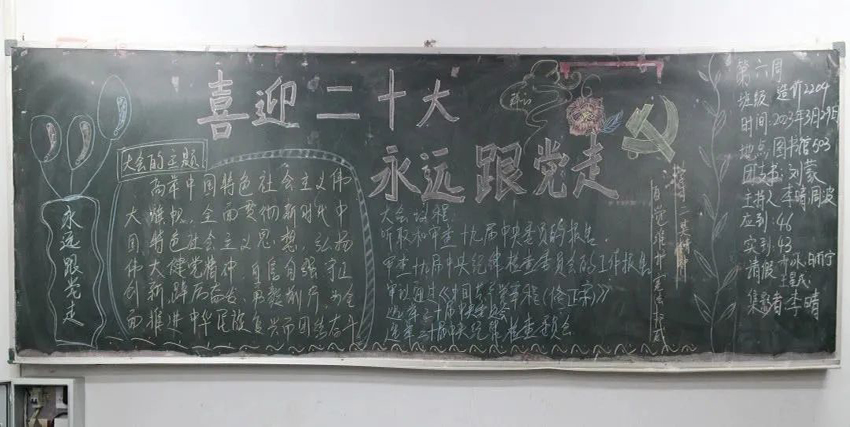 喜迎二十大
永远跟党走
永远跟党走
大会的主题
高举中国特色社会主义伟
大旗帜，全面贯彻新时代中
国特色社会主义思想，弘扬
伟大建党精神，自信自强、守正
创新，踔厉奋发、勇毅前行，为全
面推进中华民族复兴而团结奋斗
大会议程：
听取和审查十九届中央委员的报告，
审查十九届中央纪律检查委员会的工作报告
审议通过《中国共产党章程(修正案)》
选举二十届中央委员会
选举二十届中央纪律检查委员会
第六周
班级：造价2204
时间：2023年3月29日
地点：图书馆503
团支书：刘蒙
主持人：李晴 周波
应到：46
实到：43
请假：
集合者：李晴